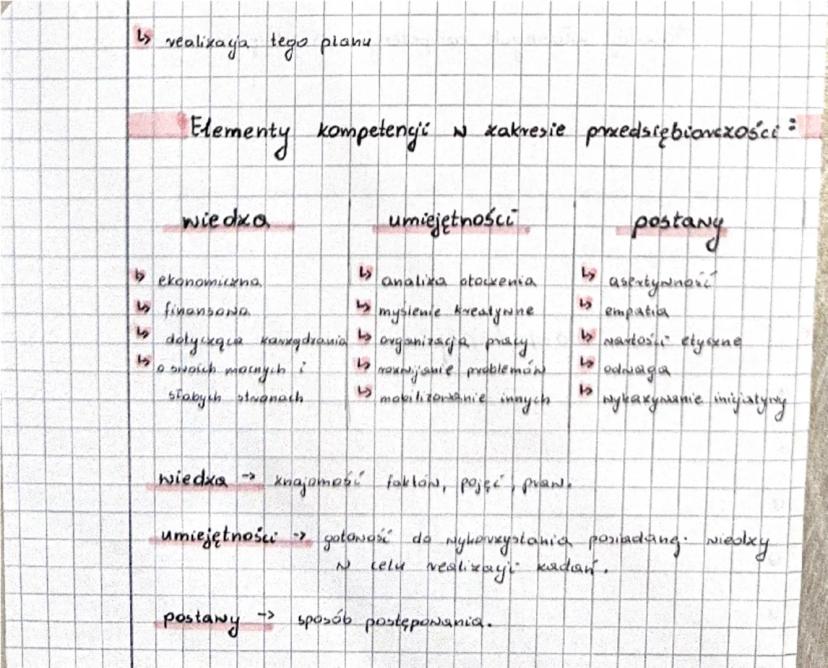 ↳ realizacja tego planu
Elementy kompetencji w zakresie przedsiębiorczości:
wiedza
↳ ekonomiczna
↳ finansowa
↳ dotycząca zarządzania
↳ o swoich mocnych i
słabych stronach
umiejętności
↳ analiza otoczenia
↳ myślenie kreatywne
↳ organizacja pracy
↳ rozwijanie problemów
↳ mobilizowanie innych
postawy
↳ asertywność
↳ empatia
↳ wartości etyczne
↳ odwaga
↳ wykazywanie inicjatywy
wiedza -> znajomość faktów, pojęć, praw.
umiejętności -> gotowość do wykorzystania posiadanej wiedzy
w celu realizacji zadań.
postawy -> sposób postępowania.